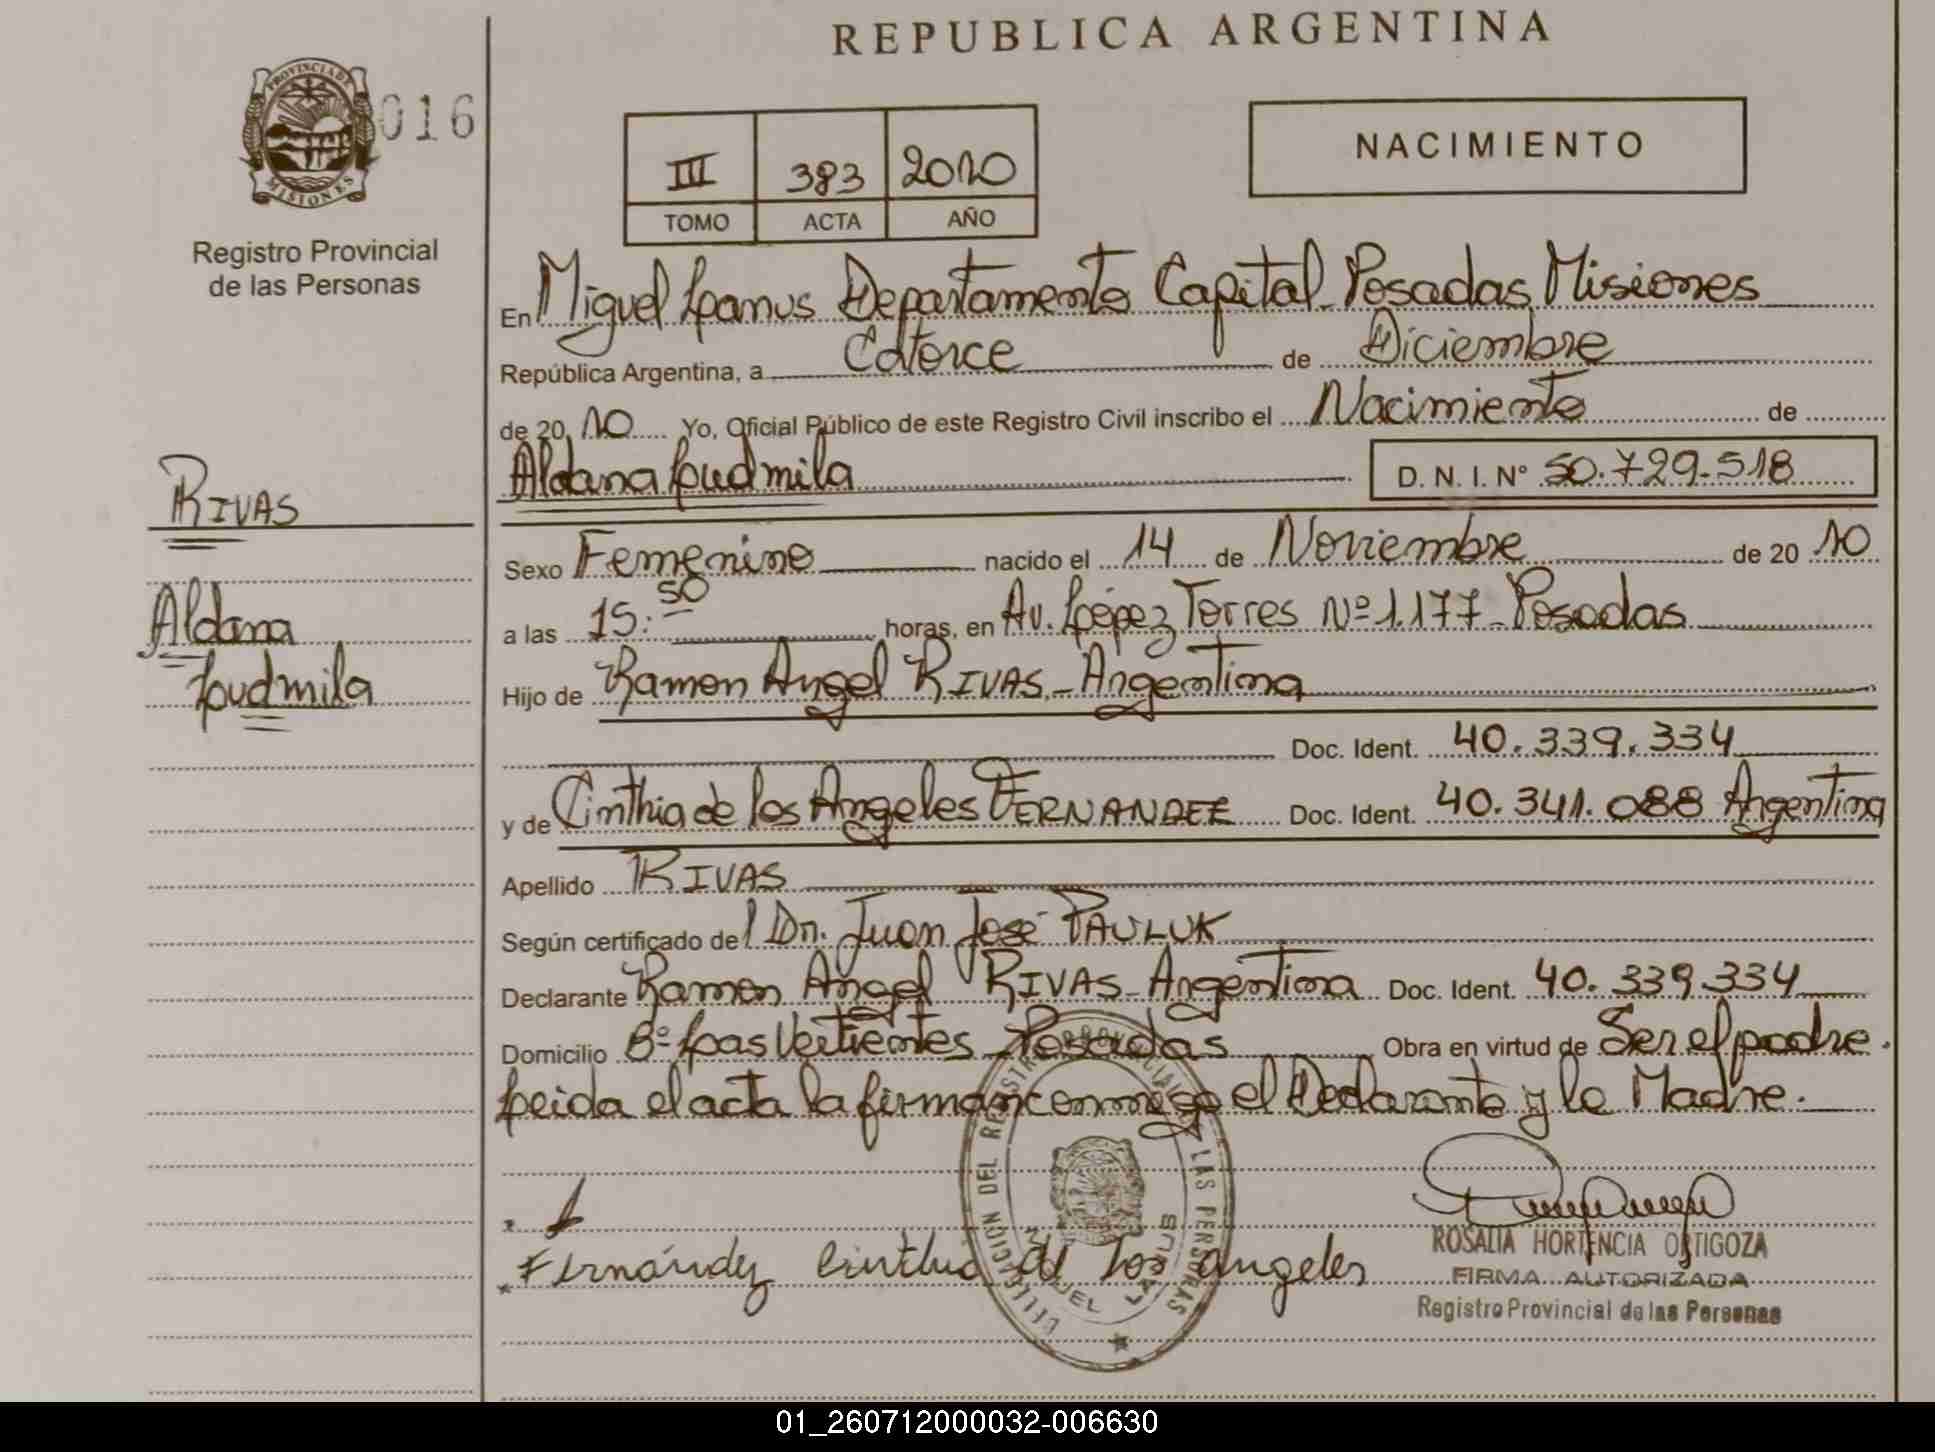 REPUBLICA ARGENTINA
PROVINCIA DE
MISIONES
016
III 383 2010
TOMO ACTA AÑO
NACIMIENTO
Registro Provincial
de las Personas
En Miguel Lanus Departamento Capital Posadas Misiones
República Argentina, a Catorce de Diciembre
de 20 10 Yo, Oficial Público de este Registro Civil inscribo el Nacimiento de
Aldana Ludmila D. N. I. Nº 50.729.518
RIVAS
Aldana
Ludmila
Sexo Femenino nacido el 14 de Noviembre de 20 10
a las 15:50 horas, en Av. López Torres Nº 1.177 - Posadas
Hijo de Ramon Angel RIVAS - Argentina
Doc. Ident. 40.339.334
y de Cinthia de los Angeles FERNANDEZ Doc. Ident. 40.341.088 Argentina
Apellido RIVAS
Según certificado del Dr. Juan José PAULUK
Declarante Ramon Angel RIVAS - Argentina Doc. Ident. 40.339.334
Domicilio Bº Las Vertientes Posadas Obra en virtud de Ser el padre.
Leida el acta la firman conmigo el Declarante y la Madre.
DELEGACION DEL REGISTRO PROVINCIAL DE LAS PERSONAS
MIGUEL LANUS
Fernández Cinthia de los angeles
ROSALIA HORTENCIA ORTIGOZA
FIRMA AUTORIZADA
Registro Provincial de las Personas
01_260712000032-006630